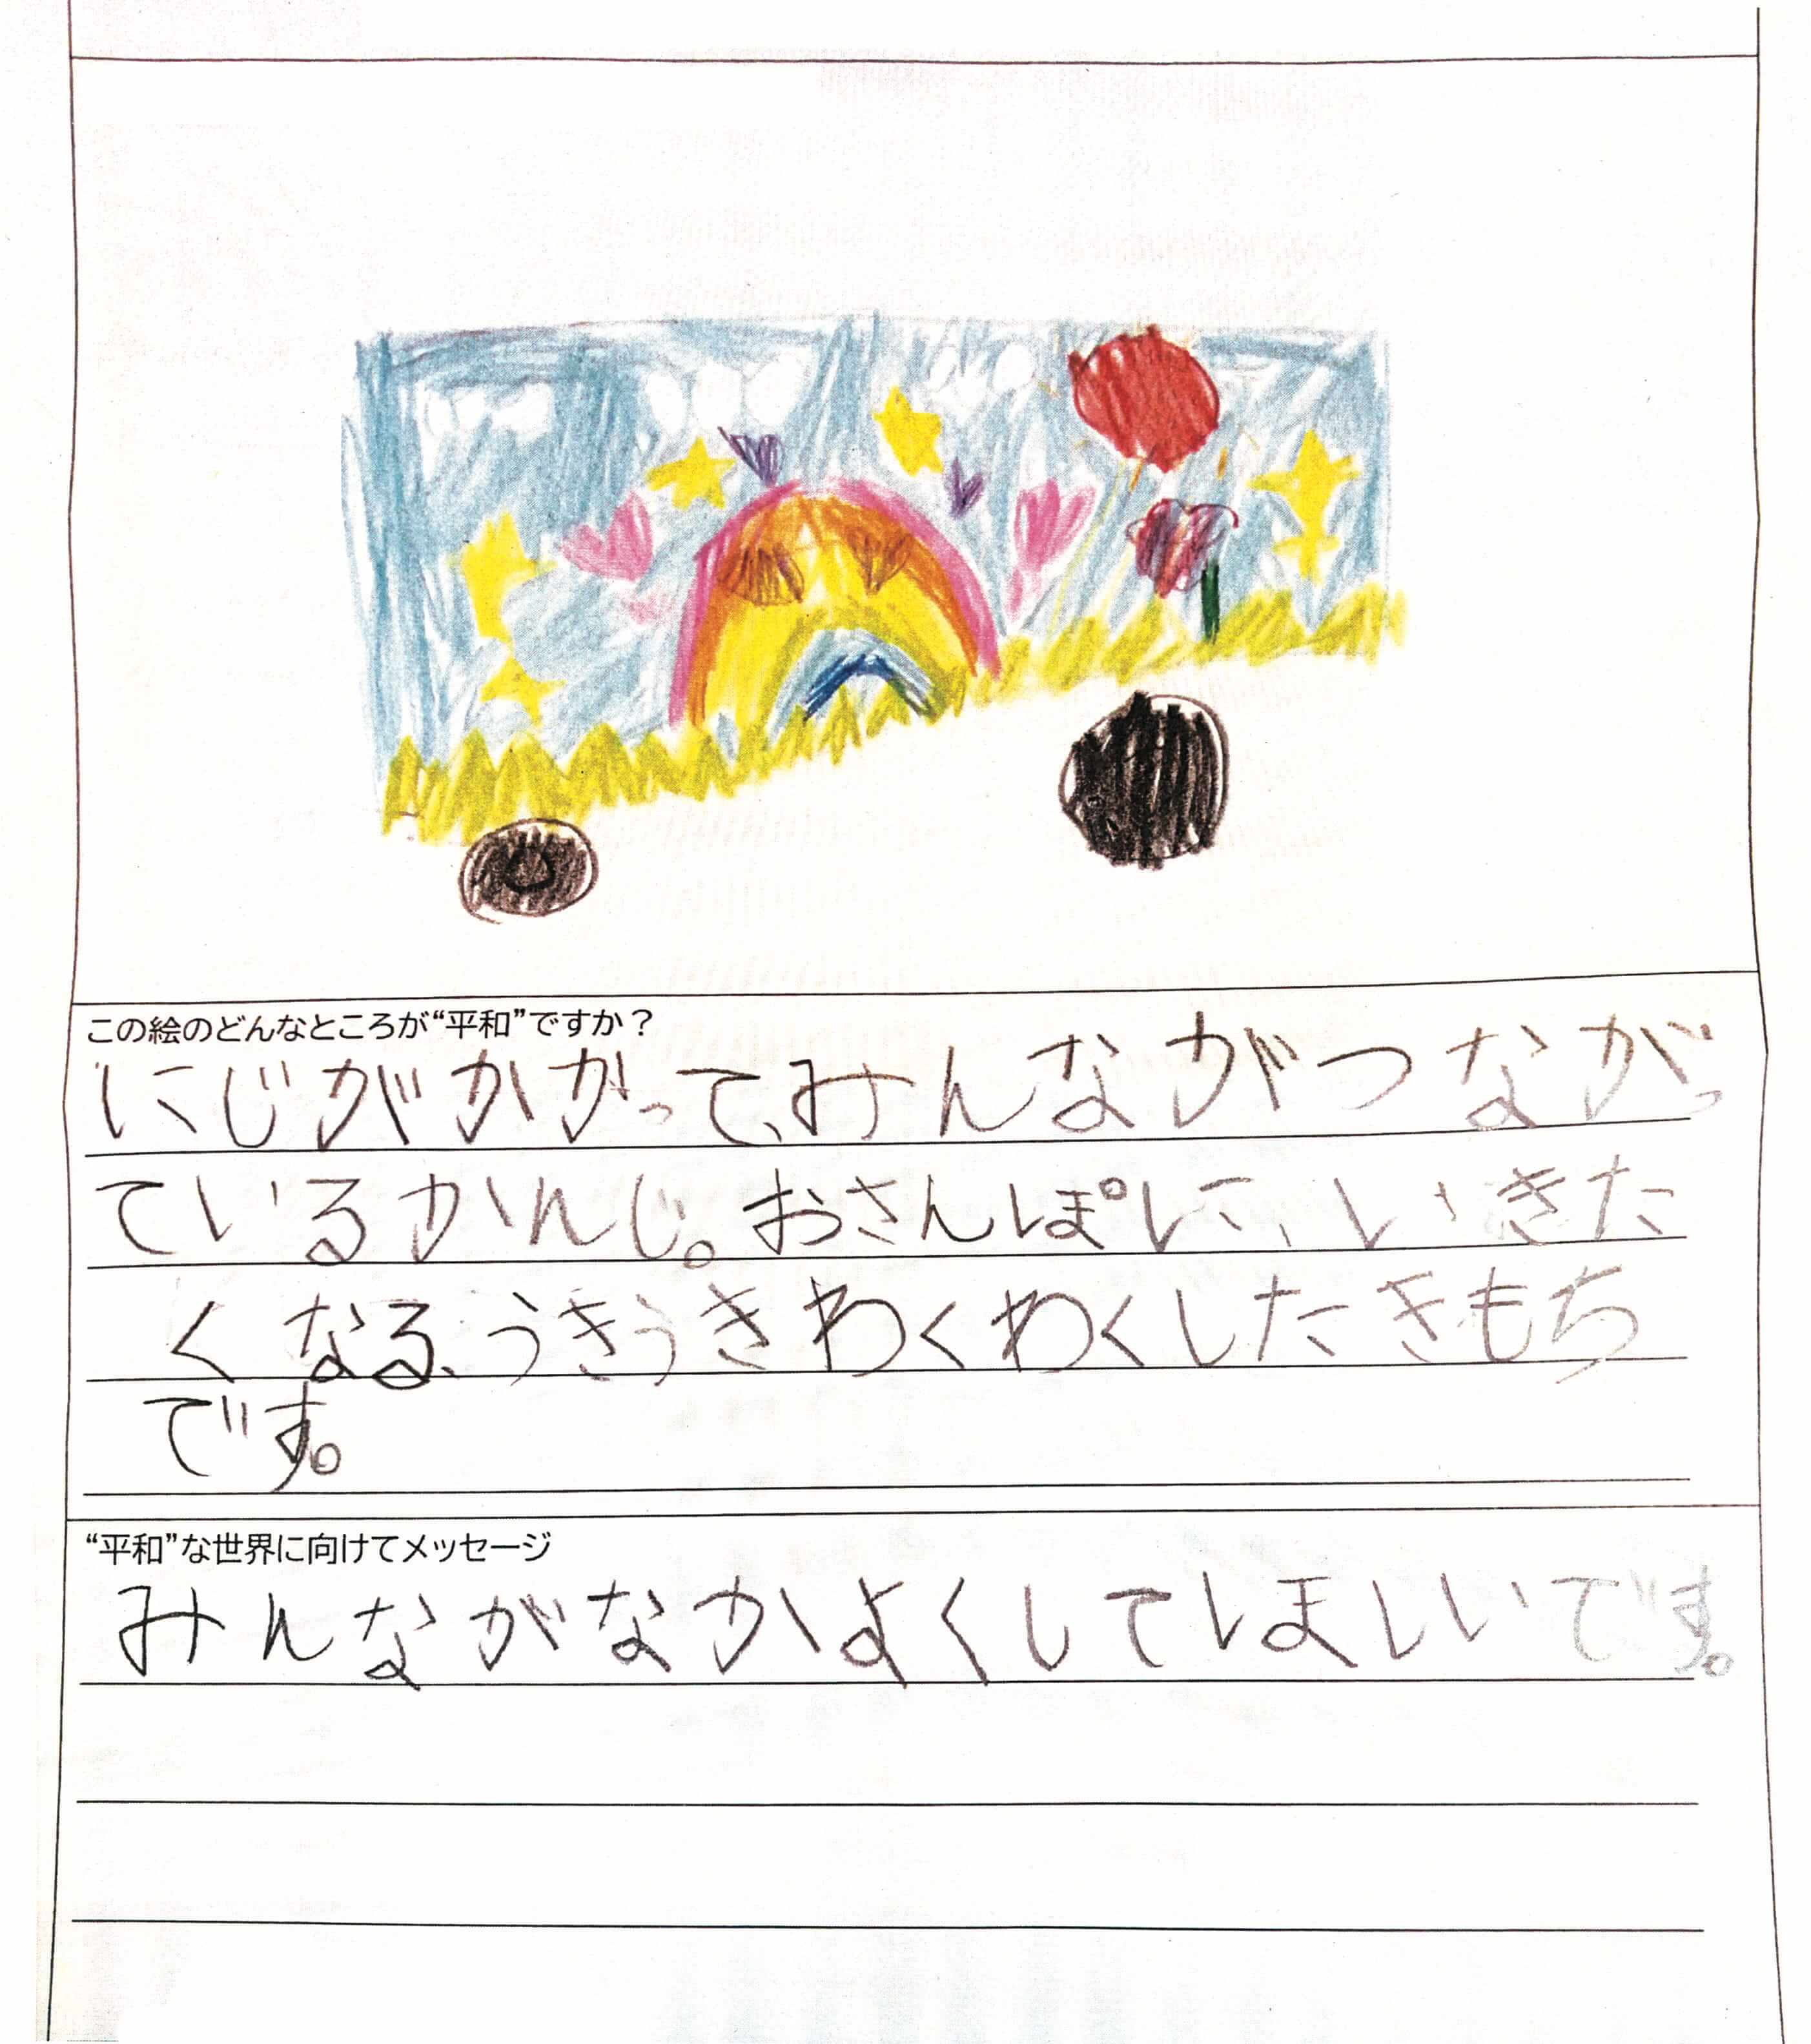 この絵のどんなところが“平和”ですか？
にじがかかって、みんながつながっ
ているかんじ。おさんぽに、いきた
くなる、うきうきわくわくしたきもち
です。
“平和”な世界に向けてメッセージ
みんながなかよくしてほしいです。